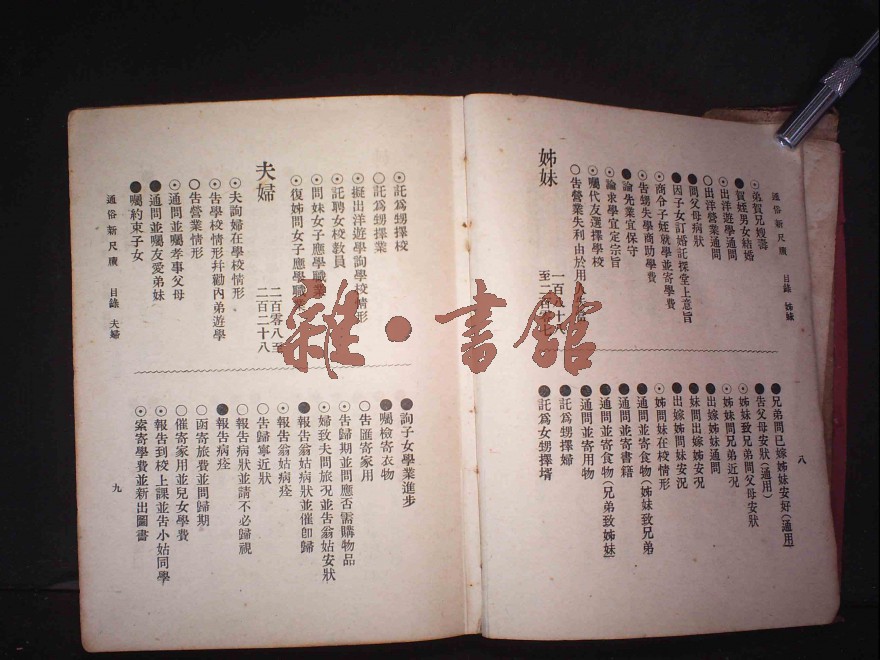 通俗新尺牘 目錄 姊妹
⊙弟賀兄嫂壽
●賀姪男女結婚
⊙出洋遊學通問
○出洋營業通問
●問父母病狀
●因子女訂婚託探堂上意旨
⊙商令子姪就學並寄學費
⊙告甥失學商助學費
●論先業宜保守
⊙論求學宜定宗旨
⊙囑代友選擇學校
○告營業失利由於用人
姊妹
八
●兄弟問已嫁姊妹安好(通用)
●告父母安狀(通用)
⊙姊妹致兄弟問父母安狀
⊙姊妹問兄弟近況
●出嫁姊妹通問
●妹問出嫁姊安況
●出嫁姊問妹安況
⊙姊問妹在校情形
●通問並寄食物(姊妹致兄弟)
●通問並寄書籍
⊙通問並寄食物(兄弟致姊妹)
●通問並寄用物
●託爲甥擇婦
●託爲女甥擇壻
⊙託爲甥擇校
○託爲甥擇業
⊙擬出洋遊學詢學校情形
⊙託聘女校教員
⊙問妹女子應學職業
⊙復姊問女子應學職業
夫婦
二百零八至
二百二十八
⊙夫詢婦在學校情形
⊙告學校情形幷勸內弟遊學
○告營業情形
⊙通問並囑孝事父母
●通問並囑友愛弟妹
●囑約束子女
通俗新尺牘 目錄 夫婦
●詢子女學業進步
●囑檢寄衣物
○告匯寄家用
⊙告歸期並問應否需購物品
⊙婦致夫問旅況並告翁姑安狀
●報告翁姑病狀並催卽歸
⊙報告翁姑病痊
○告歸寧近狀
○報告病狀並請不必歸視
●報告病痊
○函寄旅費並問歸期
○催寄家用並兒女學費
⊙報告到校上課並告小姑同學
⊙索寄學費並新出圖書
九
雜·書館